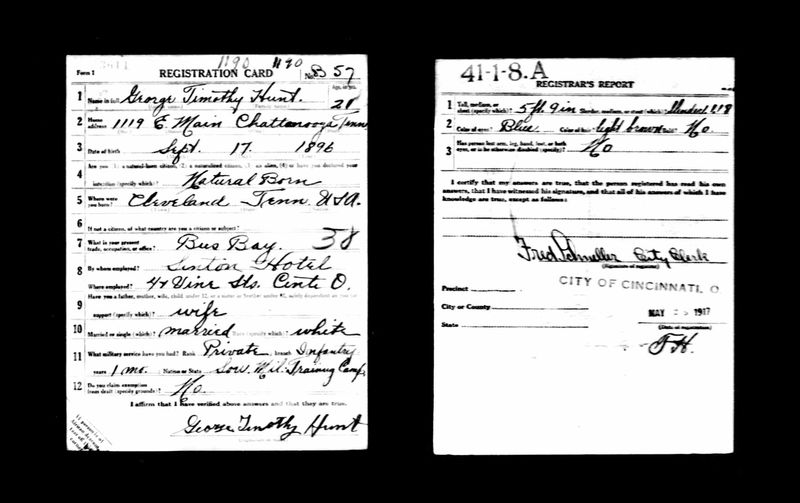 1190 1190
Form 1 REGISTRATION CARD No. B 57
1 Name in full George Timothy Hunt. Age, in yrs. 21
2 Home address 1119 E. Main Chattanooga Tenn
3 Date of birth Sept. 17. 1896
4 Are you (1) a natural-born citizen, (2) a naturalized citizen, (3) an alien, (4) or have you declared your
intention (specify which)? Natural Born
5 Where were you born? Cleveland Tenn. USA.
6 If not a citizen, of what country are you a citizen or subject?
7 What is your present trade, occupation, or office? Bus Boy. 38
8 By whom employed? Sinton Hotel
Where employed? 4 & Vine Sts. Cinti O.
9 Have you a father, mother, wife, child under 12, or a sister or brother under 12, solely dependent on you for
support (specify which)? wife
10 Married or single (which)? married Race (specify which)? white
11 What military service have you had? Rank Private, branch Infantry
years 1 mo. Nation or State Mil. Training Camp
12 Do you claim exemption from draft (specify grounds)? No.
I affirm that I have verified above answers and that they are true.
George Timothy Hunt
41-1-8. A
REGISTRAR'S REPORT
1 Tall, medium, or short (specify which)? 5 ft. 9 in Slender, medium, or stout (which)?
2 Color of eyes? Blue Color of hair? light brown No.
3 Has person lost arm, leg, hand, foot, or both eyes, or is he otherwise disabled (specify)? No
I certify that my answers are true, that the person registered has read his own
answers, that I have witnessed his signature, and that all of his answers of which I have
knowledge are true, except as follows:
Fred Schneller City Clerk
(Signature of registrar)
Precinct CITY OF CINCINNATI, O.
City or County
State MAY 1917
(Date of registration)
F.H.